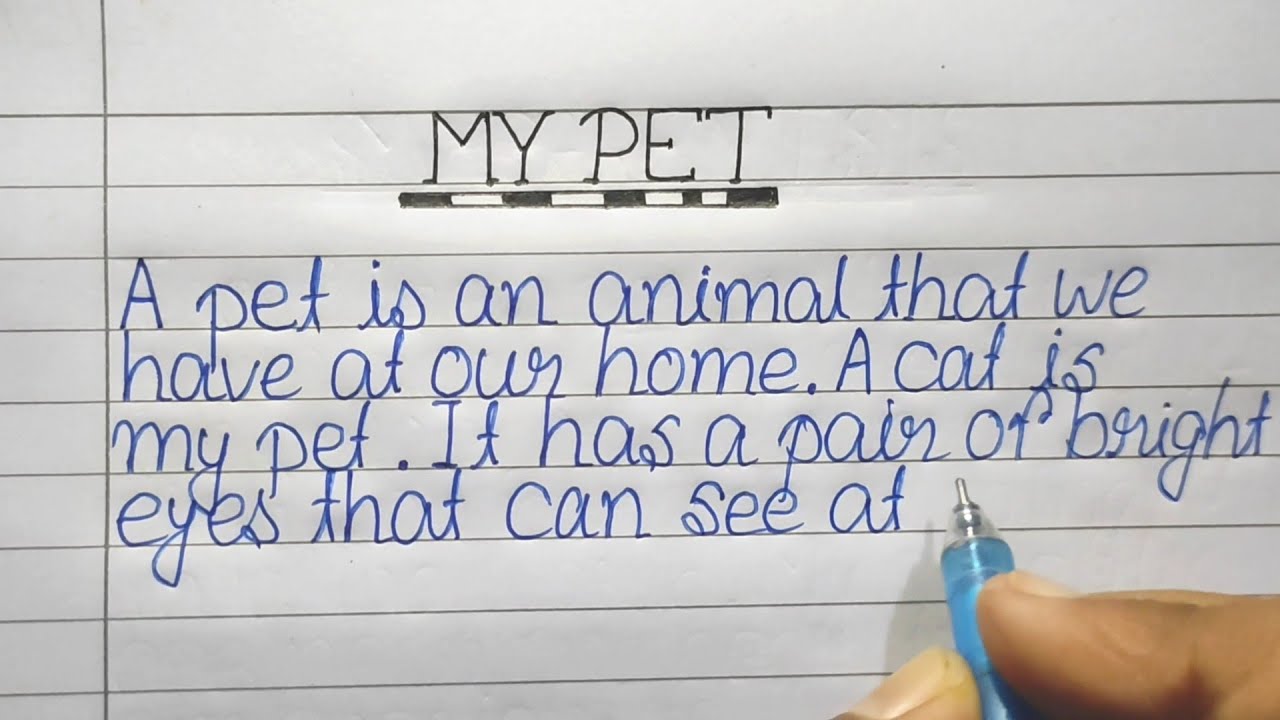 MY PET
A pet is an animal that we
have at our home. A cat is
my pet. It has a pair of bright
eyes that can see at